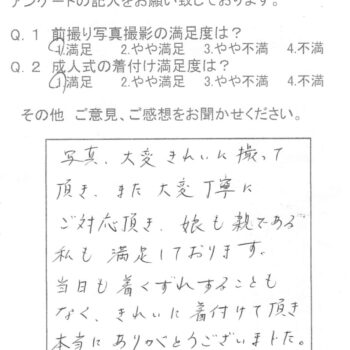 アンケートの記入をお願い致しております。
Q.1 前撮り写真撮影の満足度は？
1.満足 2.やや満足 3.やや不満 4.不満
Q.2 成人式の着付け満足度は？
1.満足 2.やや満足 3.やや不満 4.不満
その他 ご意見、ご感想をお聞かせください。
写真、大変きれいに撮って
頂き、また大変丁寧に
ご対応頂き、娘も親である
私も満足しております。
当日も着くずれすることも
なく、きれいに着付けて頂き
本当にありがとうございました。